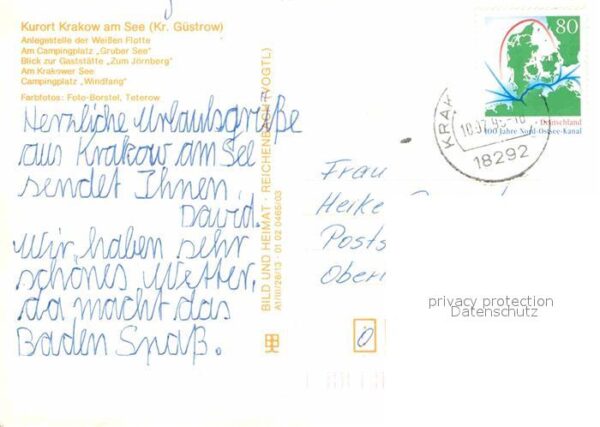 Kurort Krakow am See (Kr. Güstrow)
Anlegestelle der Weißen Flotte
Am Campingplatz „Gruber See"
Blick zur Gaststätte „Zum Jörnberg"
Am Krakower See
Campingplatz „Windfang"
Farbfotos: Foto-Borstel, Teterow
Herzliche Urlaubsgrüße
aus Krakow am See
sendet Ihnen
David.
Wir haben sehr
schönes Wetter,
da macht das
Baden Spaß.
BILD UND HEIMAT · REICHENBACH (VOGTL)
A1/III/26/13 · 01 02 0465/03
80
Deutschland
100 Jahre Nord-Ostsee-Kanal
KRAK
18292
Frau
Heike
Posts
Ober
privacy protection
Datenschutz